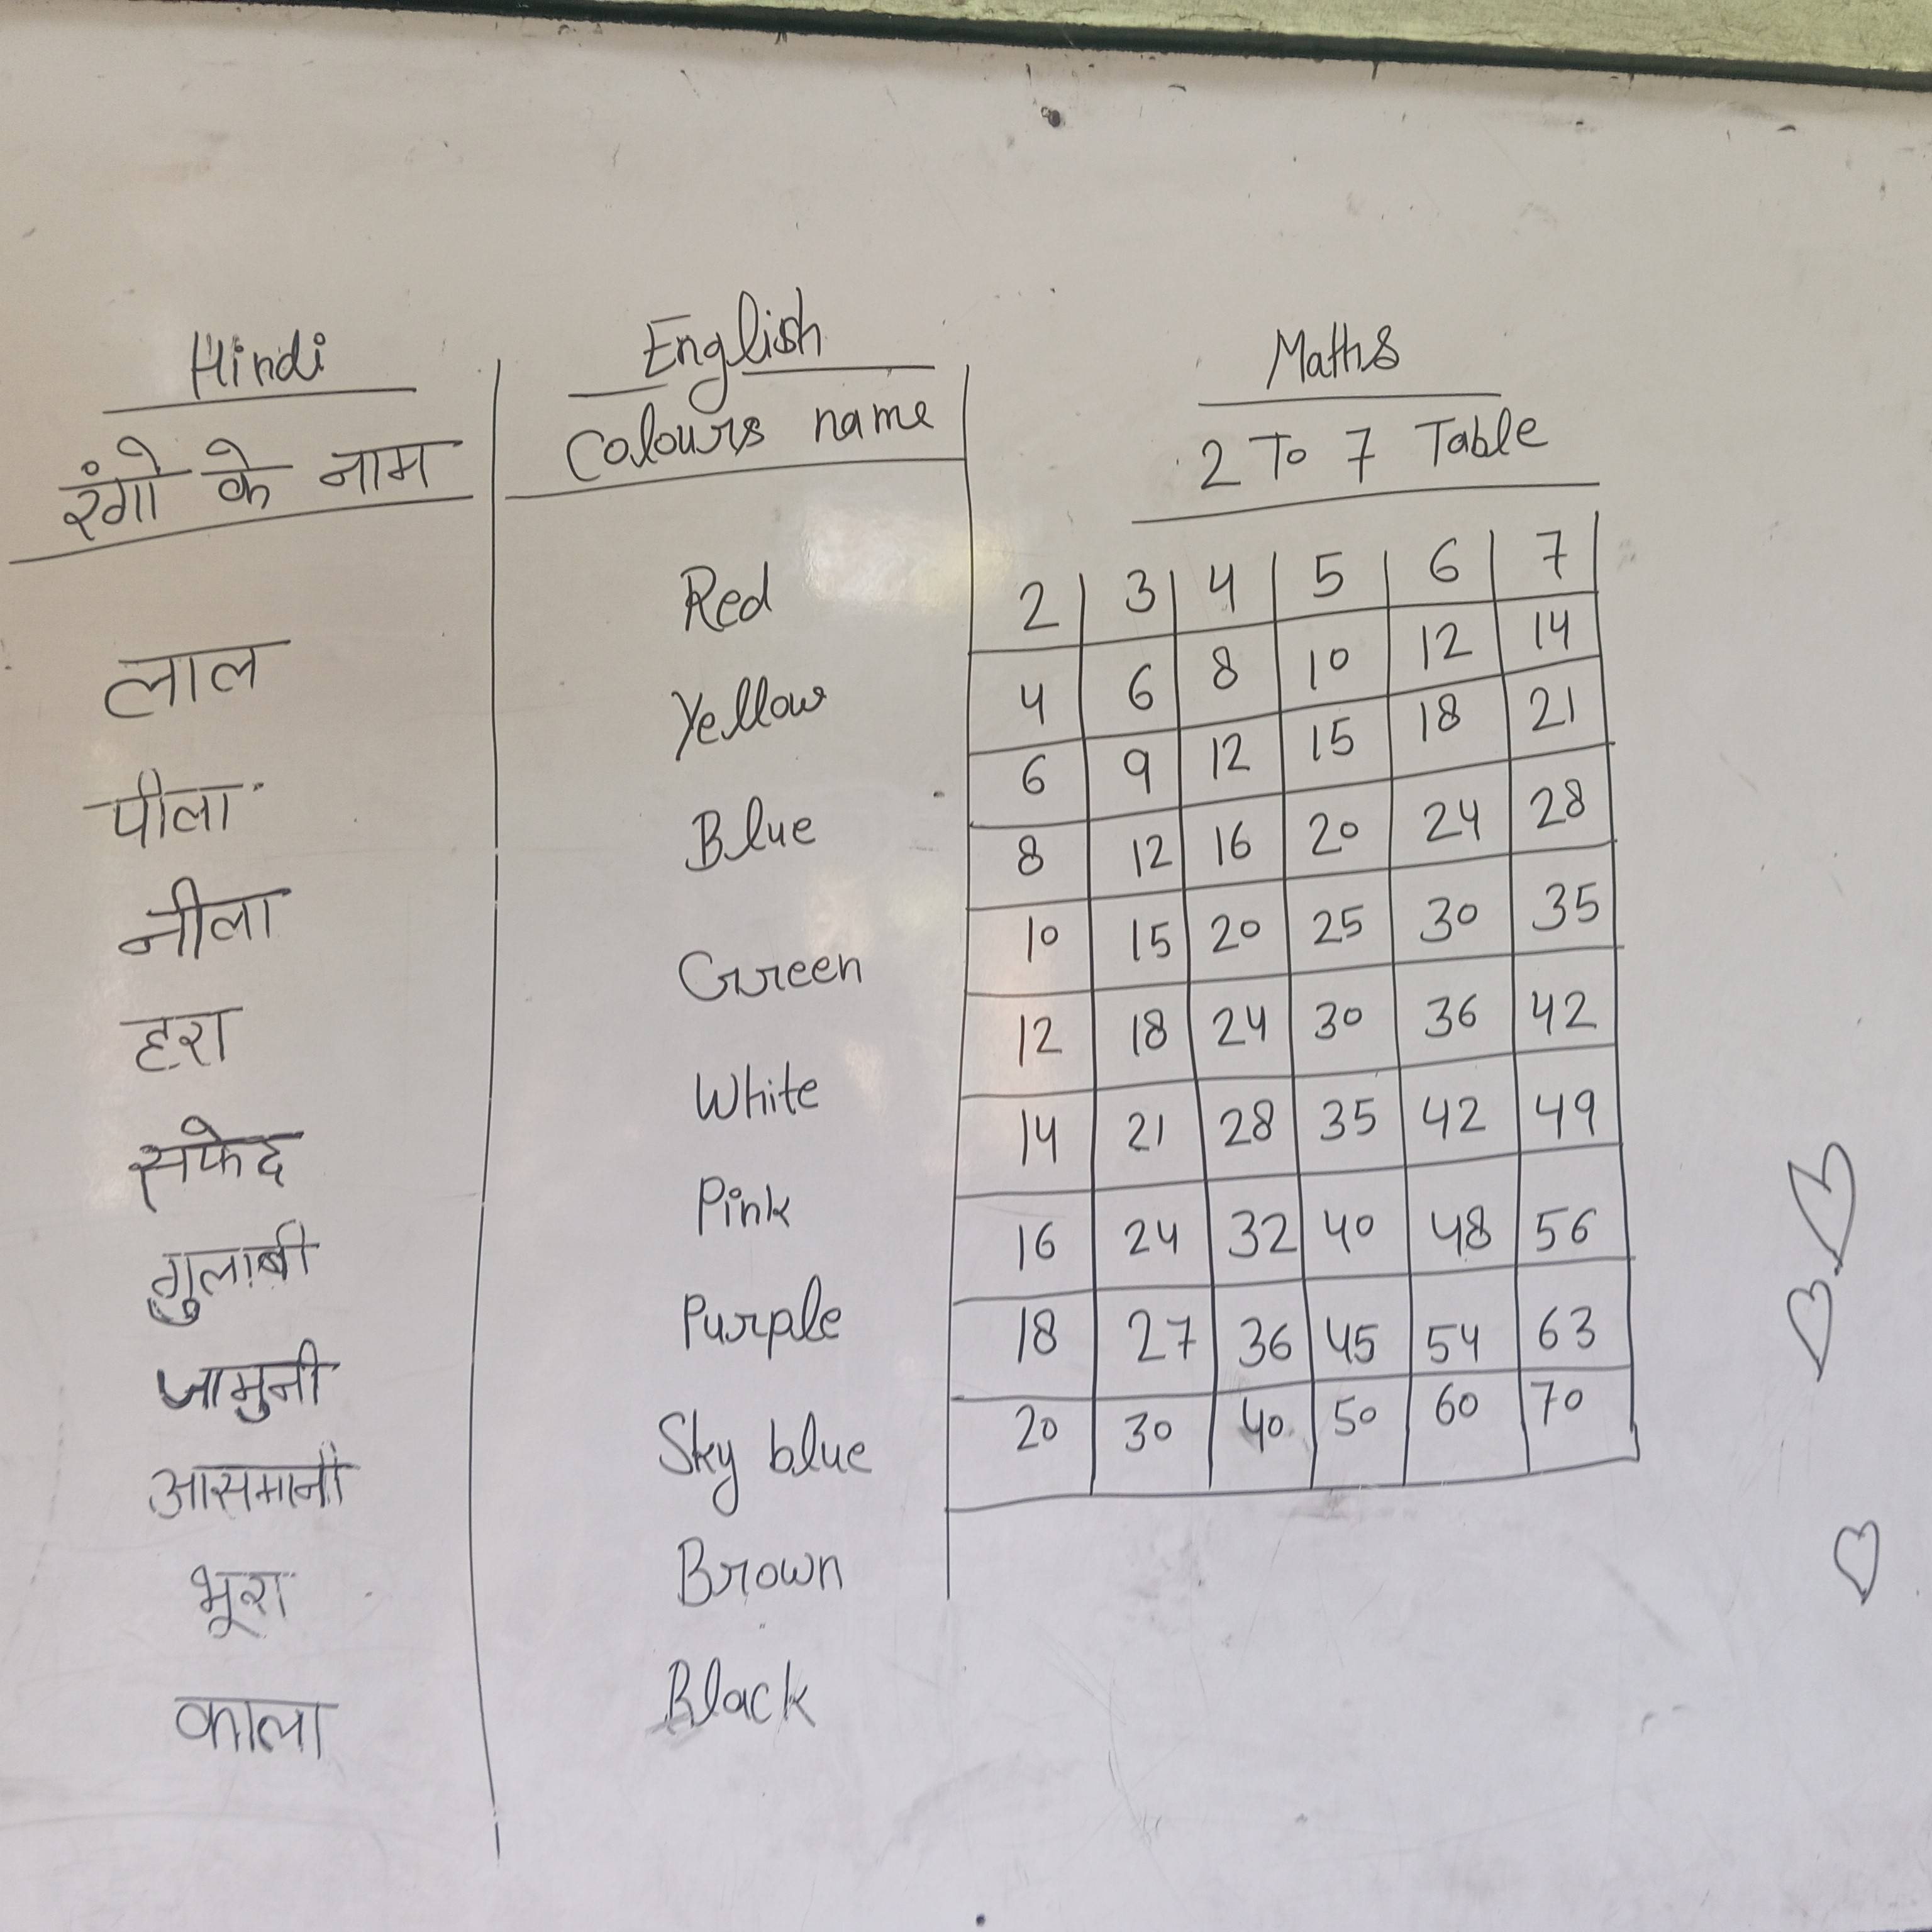 Hindi
रंगो के नाम
लाल
पीला
नीला
हरा
सफेद
गुलाबी
जामुनी
आसमानी
भूरा
काला
English
Colours name
Red
Yellow
Blue
Green
White
Pink
Purple
Sky blue
Brown
Black
Maths
2 To 7 Table
2 3 4 5 6 7
4 6 8 10 12 14
6 9 12 15 18 21
8 12 16 20 24 28
10 15 20 25 30 35
12 18 24 30 36 42
14 21 28 35 42 49
16 24 32 40 48 56
18 27 36 45 54 63
20 30 40 50 60 70